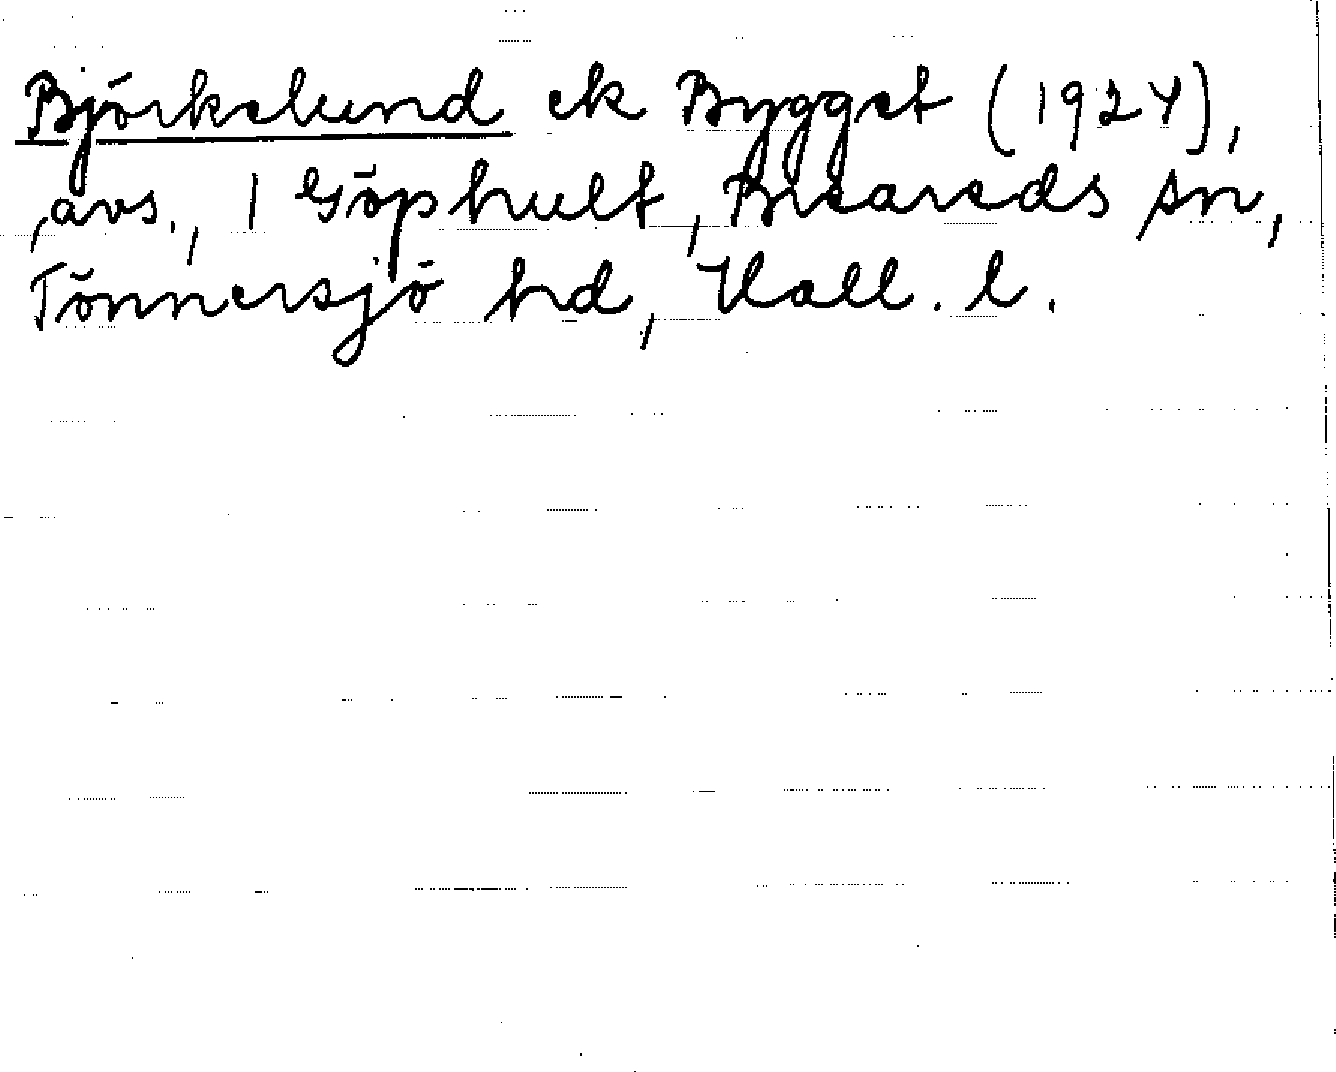 Björkelund ek Bygget (1924),
avs., 1 Göphult, Breareds sn,
Tönnersjö hd, Hall. l.